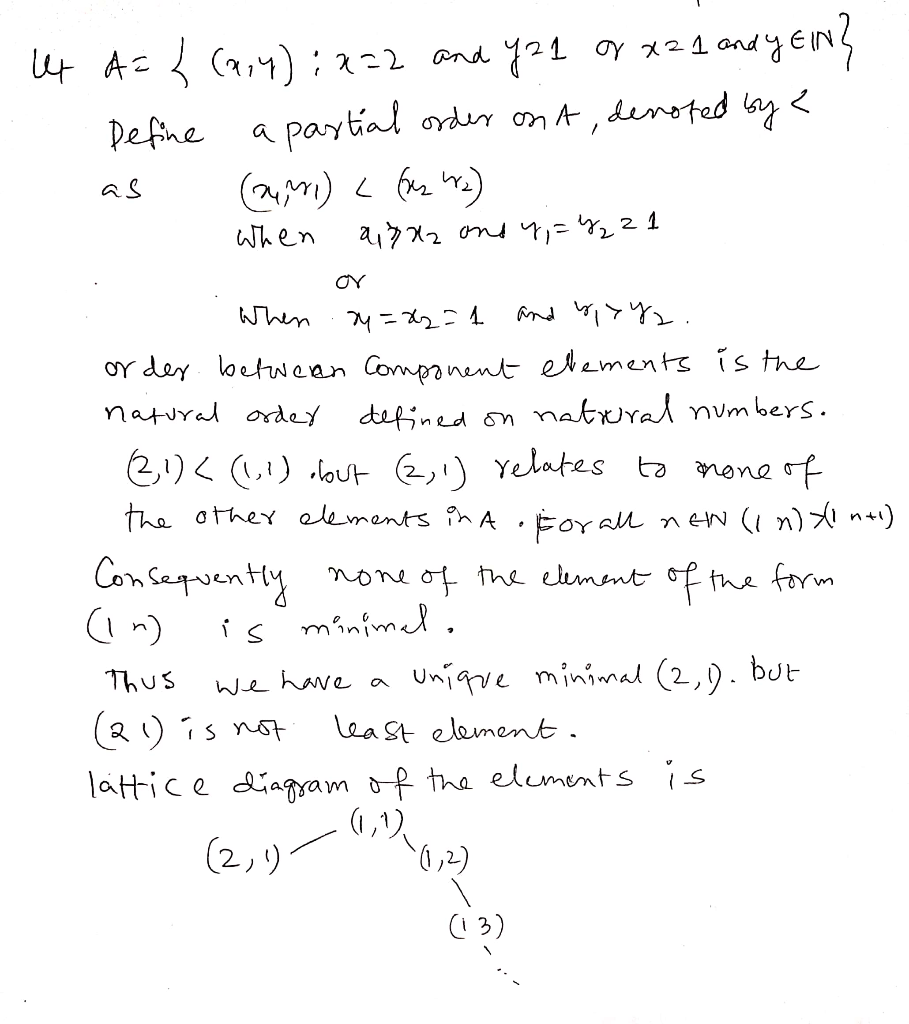 let A = { (x,y) ; x=2 and y=1 or x=1 and y ∈ IN }
Define a partial order on A, denoted by <
as (x₁,y₁) < (x₂ y₂)
when x₁ ≥ x₂ and y₁ = y₂ = 1
or
when x₁ = x₂ = 1 and y₁ > y₂.
order between component elements is the
natural order defined on natural numbers.
(2,1) < (1,1) .but (2,1) relates to none of
the other elements in A . For all n ∈ IN (1 n) > (1 n+1)
Consequently none of the element of the form
(1 n) is minimal.
Thus we have a unique minimal (2,1). but
(2 1) is not least element.
lattice diagram of the elements is
(1,1)
(2,1) (1,2)
(1 3)